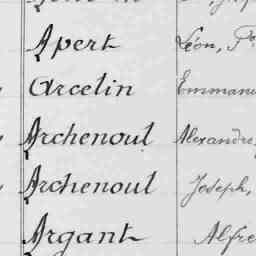 Apert Léon,
Arcelin
Archenoul Alexandre,
Archenoul Joseph,
Argant